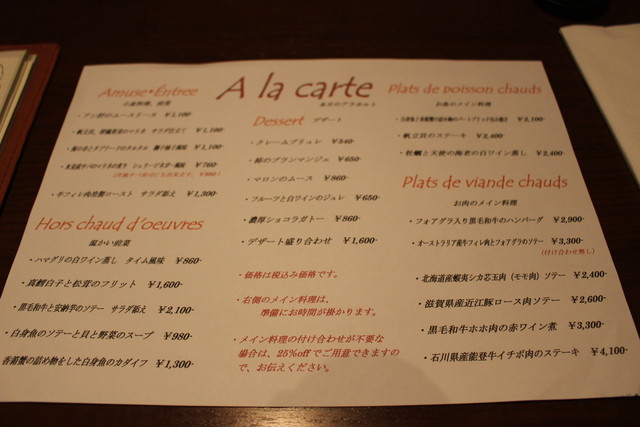 A la carte
本日のアラカルト
Amuse・Entree
小前料理、前菜
・アン肝のムースリーヌ ¥1,100
サラダ仕立て ¥1,100-
¥1,100-
¥760-
・牛フィレ肉 ロースト サラダ添え ¥1,300-
Hors chaud d'oeuvres
温かい前菜
・ハマグリの白ワイン蒸し タイム風味 ¥860-
・真鱈白子と松茸のフリット ¥1,600-
・黒毛和牛と安納芋のソテー サラダ添え ¥2,100-
・白身魚のソテーと貝と野菜のスープ ¥980-
香箱蟹の詰め物をした白身魚のカダイフ ¥1,300-
Dessert デザート
・クレームブリュレ ¥540-
・柿のブランマンジェ ¥650-
・マロンのムース ¥860-
・フルーツと白ワインのジュレ ¥650-
・濃厚ショコラガトー ¥860-
・デザート盛り合わせ ¥1,600-
・価格は税込み価格です。
・右側のメイン料理は、
準備にお時間が掛かります。
・メイン料理の付け合わせが不要な
場合は、25%offでご用意できますの
で、お伝えください。
Plats de poisson chauds
お魚のメイン料理
¥2,100-
・帆立貝のステーキ ¥2,400-
・牡蠣と天使の海老の白ワイン蒸し ¥2,400-
Plats de viande chauds
お肉のメイン料理
・フォアグラ入り黒毛和牛のハンバーグ ¥2,900-
・オーストラリア産牛フィレ肉とフォアグラのソテー ¥3,300-
(付け合わせ無し)
・北海道産蝦夷シカ芯玉肉(モモ肉)ソテー ¥2,400-
・滋賀県産近江豚ロース肉ソテー ¥2,600-
・黒毛和牛ホホ肉の赤ワイン煮 ¥3,300-
・石川県産能登牛イチボ肉のステーキ ¥4,100-